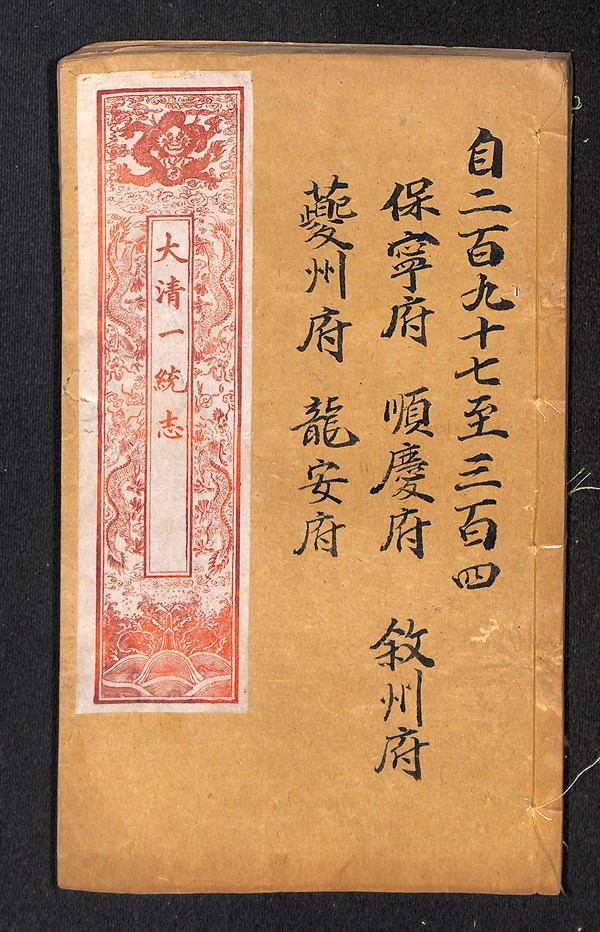 自二百九十七至三百四
保寧府 順慶府 敘州府
夔州府 龍安府
大清一統志